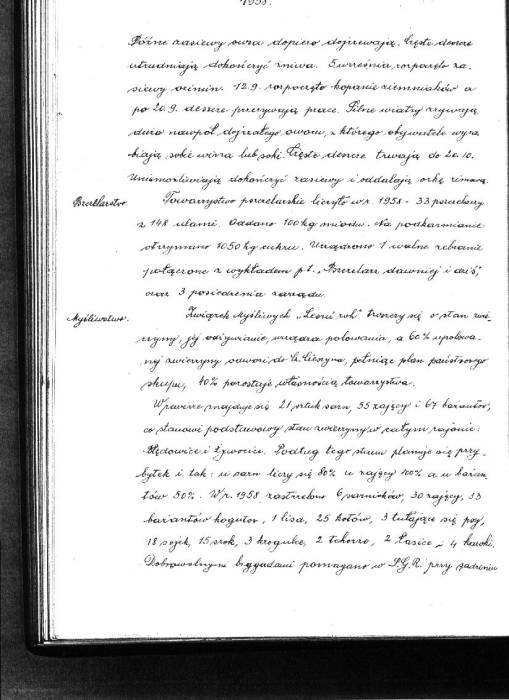 1958.
Późne zasiewy owsa dopiero dojrzewają. Częste deszcze
utrudniają dokończyć żniwa. 5 września rozpoczęto za-
siewy ozimin. 12.9. rozpoczęto kopanie ziemniaków a
po 20.9. deszcze przerywają pracę. Silne wiatry zrywają
dużo nawpół dojrzałego owocu, z którego obywatele wyra-
biają sobie wina lub soki. Częste deszcze trwają do 20.10.
Uniemożliwiają dokończyć zasiewy i oddalają orkę zimową.
Pszczelarstwo. Towarzystwo pszczelarskie liczyło w r. 1958 - 33 pszczelarzy
z 148 ulami. Oddano 100 kg miodu. Na podkarmianie
otrzymano 1050 kg cukru. Urządzono 1 walne zebranie
połączone z wykładem p.t. „Pszczelarz dawniej i dziś",
oraz 3 posiedzenia zarządu.
Myślistwo. Związek Myśliwych „Leśni " troszczy się o stan zwie-
rzyny, jej odżywianie, urządza polowania, a 60% upolowa-
nej zwierzyny odwozi do Cz. Cieszyna, pełniąc plan państwowego
skupu, 40% pozostaje własnością towarzystwa.
W rewirze znajduje się 21 sztuk sarn, 55 zajęcy i 67 bażantów,
co stanowi podstawowy stan zwierzyny w całym rejonie:
Błędowice i Żywocice. Podług tego stanu planuje się przy-
bytek i tak: u sarn liczy się 80% u zajęcy 100% a u bażan-
tów 50%. W r. 1958 zastrzelono 6 sarnioków, 30 zajęcy, 33
bażantów kogutów, 1 lisa, 25 kotów, 3 tułające się psy,
18 sojek, 15 srok, 3 krogulce, 2 tchorze, 2 łasice i 4 kawki.
Dobrowolnymi brygadami pomagano w P.G.R. przy sadzeniu